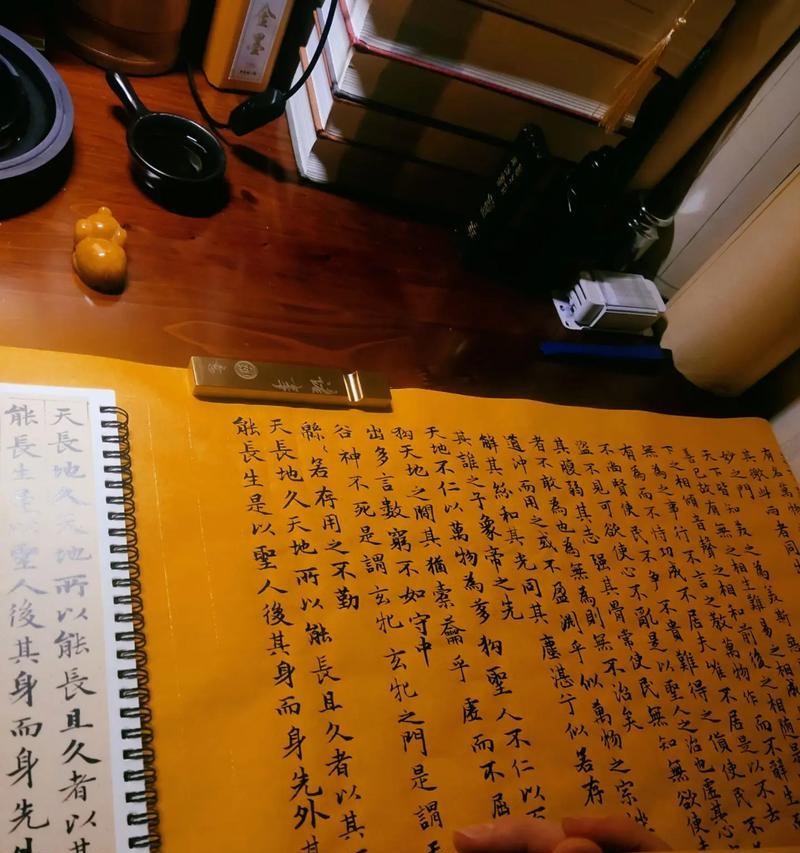 金墨
妙之門
天下皆知美之為美斯惡
善已故有無之相生難易之相成
下之相傾音聲之相和前後之相隨是
無為之事行不言之教萬物作而不辭生
有為而不恃功成不居夫唯不居是以不去
不尚賢使民不爭不貴難得之貨使民不
盜不見可欲使心不亂是以聖人之治也虛其心
其腹弱其志强其骨常使民無知無欲使夫
者不敢為也為無為則無不治矣
道沖而用之或不盈淵乎似萬物之宗挫
解其紛和其光同其塵湛兮似若存
其誰之子象帝之先
天地不仁以萬物為芻狗聖人不仁以百
狗天地之間其猶橐籥乎虛而不屈
出多言數窮不如守中
谷神不死是謂玄牝玄牝之門是謂天
緜〻若存用之不勤
天長地久天地所以能長且久者以其
能長生是以聖人後其身而身先外其
天長地久天地所以能長且久者以其
能長生是以聖人後其身而身先外